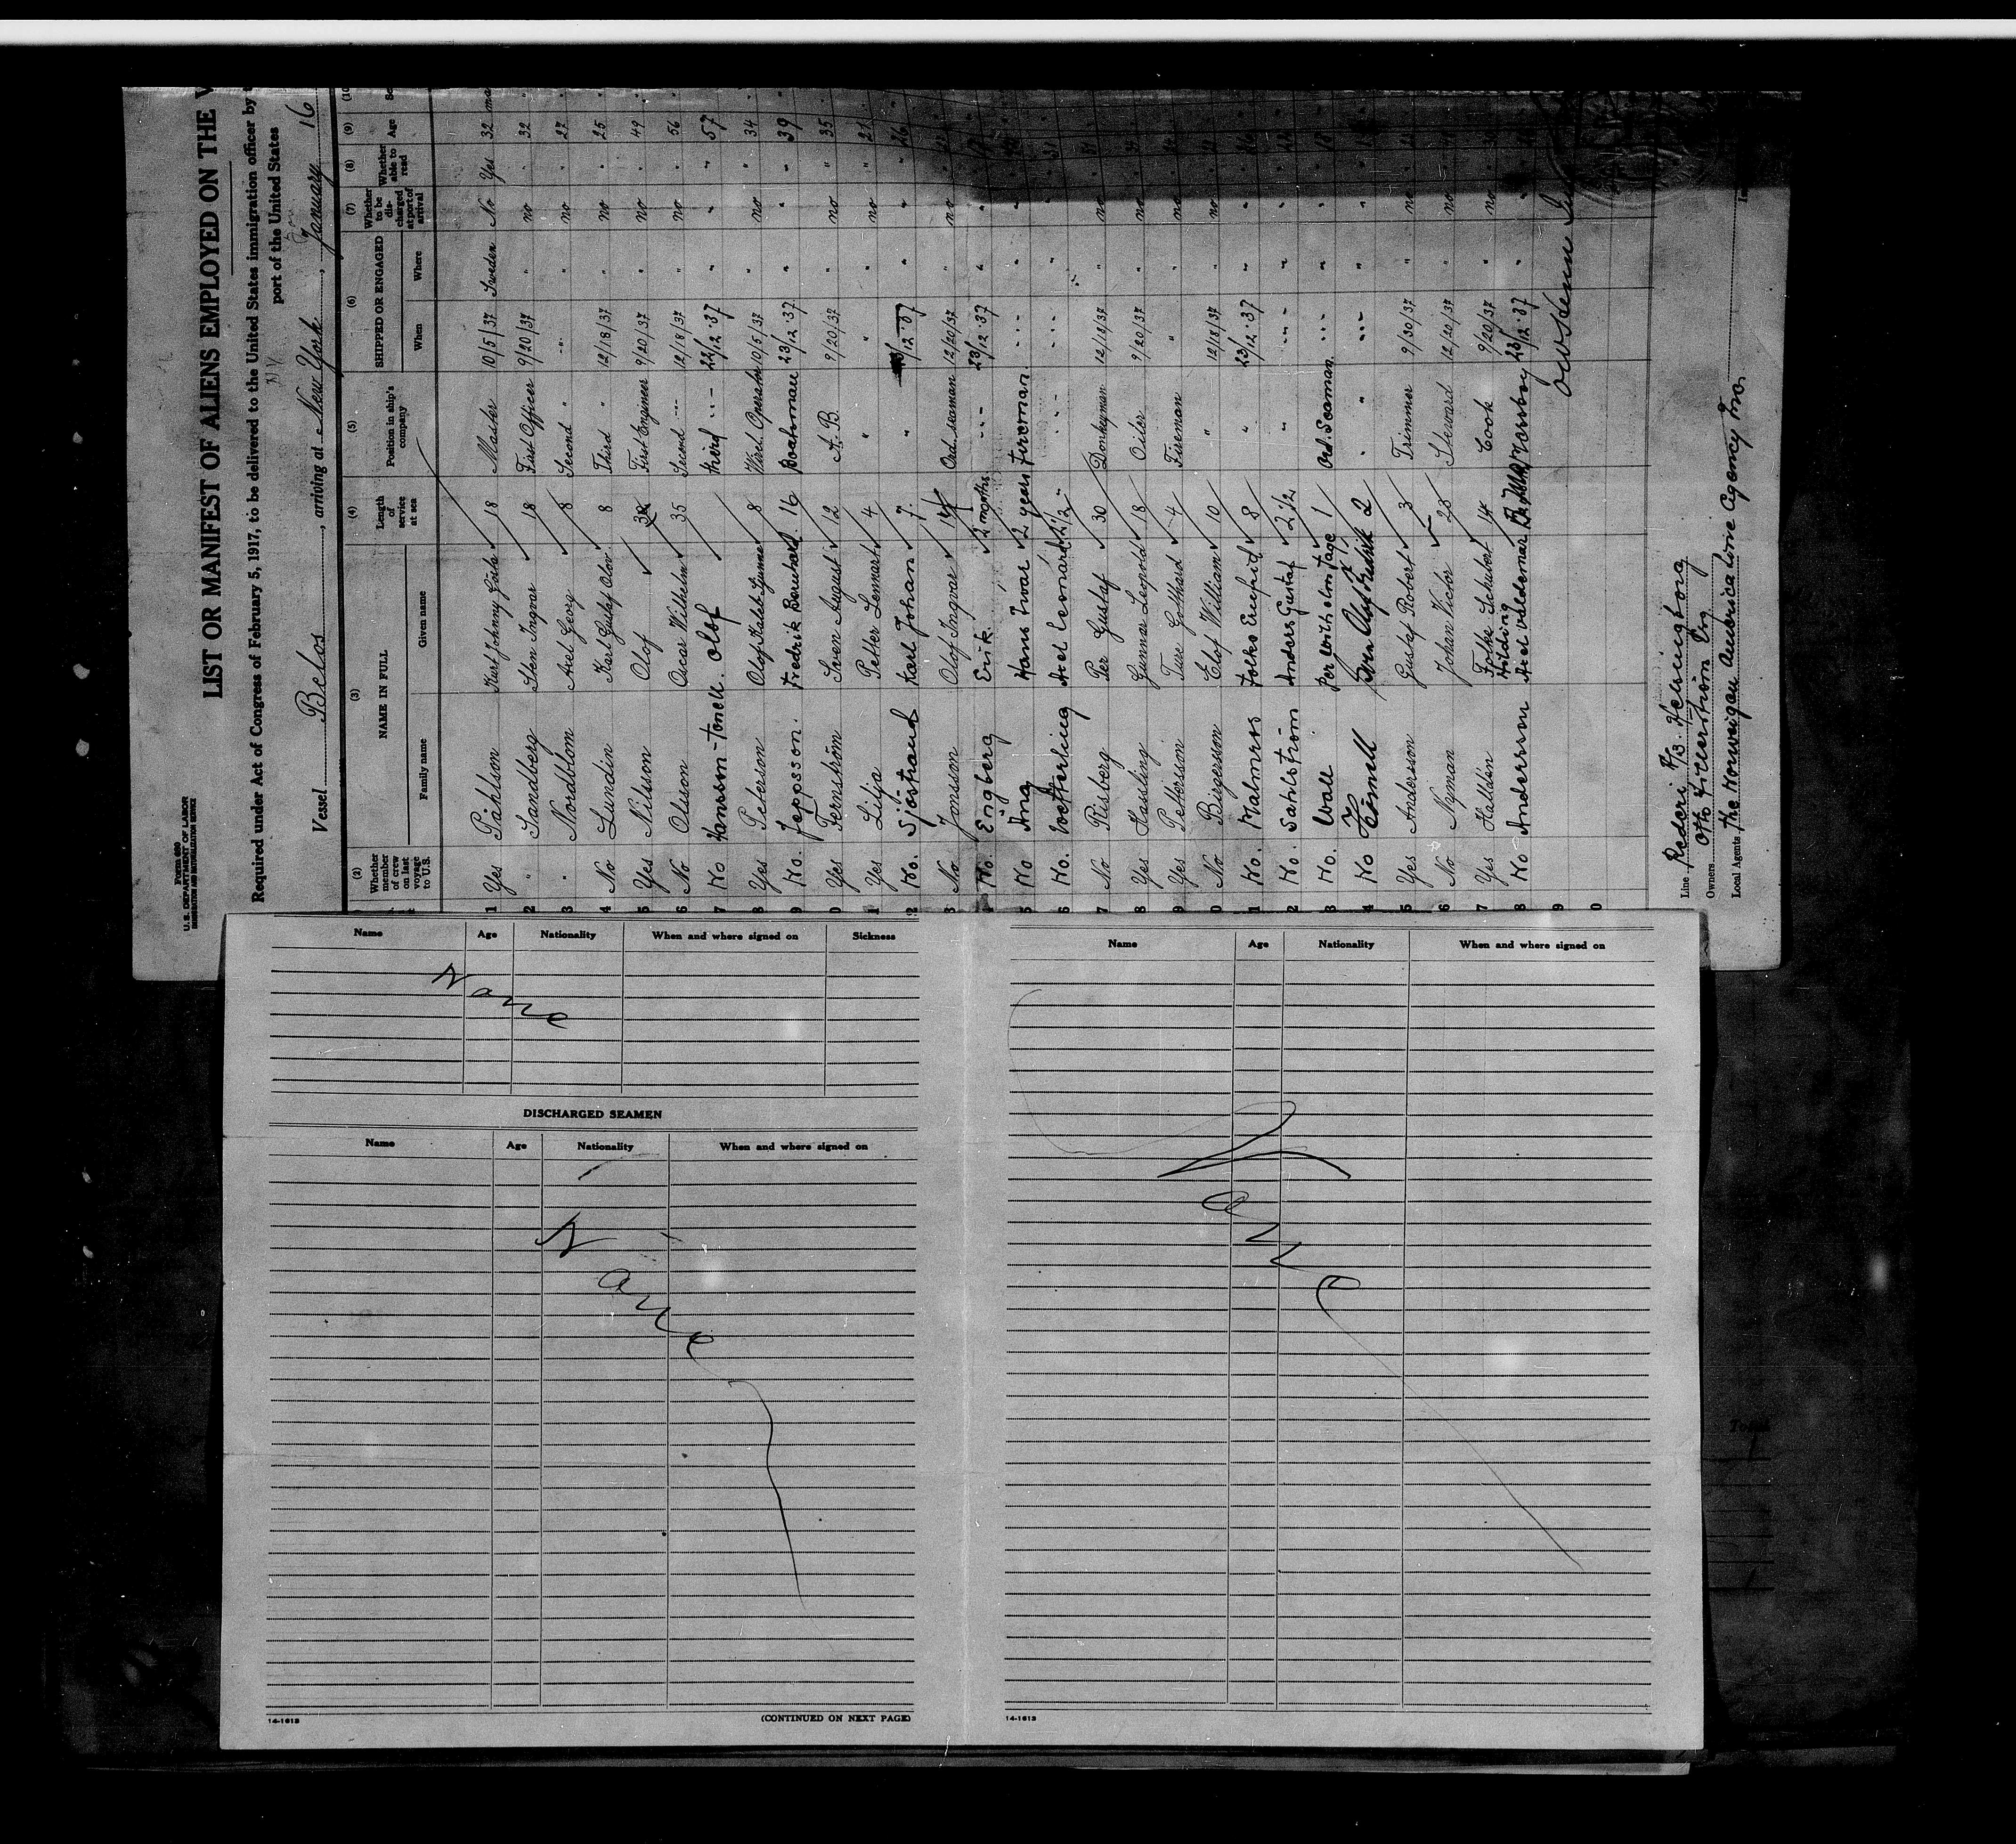 Form 680
U.S. DEPARTMENT OF LABOR
IMMIGRATION AND NATURALIZATION SERVICE
LIST OR MANIFEST OF ALIENS EMPLOYED ON THE V
Required under Act of Congress of February 5, 1917, to be delivered to the United States immigration officer by
port of the United States
Vessel Belos, arriving at New York, January 16
(2) (3) (4) (5) (6) (7) (8) (9) (10
Whether member of crew on last voyage to U.S. NAME IN FULL Family name Given name Length of service at sea Position in ship's company SHIPPED OR ENGAGED When Where Whether to be discharged at port of arrival Whether able to read Age Se
1 Yes Påhlson Kurt Johnny Gösta 18 Master 10/5/37 Sweden No Yes 32 ma
2 " Sandberg Sten Ingvar 18 First Officer 9/20/37 " no " 32 "
3 " Nordblom Axel Georg 8 Second " -"- " no " 27 "
4 No Lundin Karl Gustaf Olov 8 Third " 12/18/37 " no " 25 "
5 Yes Nilsson Olof First Engineer 9/20/37 " no " 49 "
6 No Olsson Oscar Wilhelm 35 Second -"- 12/18/37 " no " 56 "
7 No Hansson-Tonell. Olof third -"- 22/12.37 " " " 57 "
8 Yes Peterson Olof Kaleb Gunnar 8 Wirel. Operator 10/5/37 " no " 34 "
9 No. Jeppsson. Fredrik Bernhard. 16 Boatsman 23/12.37 " " " 39 "
0 Yes Fernström Sven August 12 A.B. 9/20/37 " no " 35 "
1 Yes Lilja Petter Lennart 4 " " " no "
2 No. Sjöstrand Karl Johan 7. " /12.37 " " " 26
3 No Jonsson Olof Ingvar 14 Ord. seaman 12/20/37 no
No. Engberg Erik. 2 months -"- 23/12.37 "
5 No Ång Hans Ivar 2 years Fireman -"- "
6 No. Wetterling Axel Leonard 2 1/2 - -"- -"- " 31
7 No Risberg Per Gustaf 30 Donkeyman 12/18/37 " no
8 Yes Hassling Gunnar Leopold 18 Oiler 9/20/37 " no
9 Yes Pettersson Ture Gotthard 4 Fireman " " no
0 No Birgersson Elof William 10 " 12/18/37 " no
1 No. Malmros Folke Enefrid 8 " 23/12.37 "
2 No. Sahlström Anders Gustaf 2 1/2 " -"- "
3 No. Wall Per Wilhelm Tage 1 Ord. Seaman -"- " 18
4 No Sven Olof Fredrik 2 " -"- "
5 Yes Andersson Gustaf Robert 3 Trimmer 9/30/37 " no
6 No Nyman Johan Victor 23 Steward 12/20/37 " no
7 Yes Hallén Folke Schubert Hilding 14 Cook 9/20/37 " no
8 No Andersson Axel Valdemar Messboy 23/12.37 "
9
0
Line Rederi A/B. Helsingborg
Owners Otto Hillerström
Local Agents The Norwegian America Line Agency Inc.
Name Age Nationality When and where signed on Sickness
None
DISCHARGED SEAMEN
Name Age Nationality When and where signed on
None
14-1613 (CONTINUED ON NEXT PAGE)
Name Age Nationality When and where signed on
None
14-1613